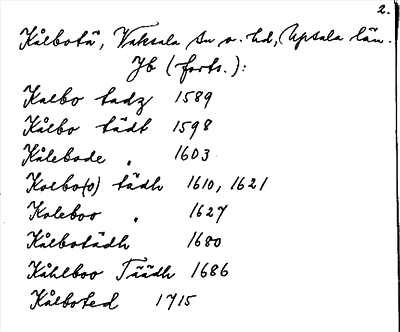 2.
Kålbotä, Vaksala sn o. hd, Upsala län.
Jb (forts.):
Kalbo tadz 1589
Kålbo tädt 1598
Kålebode „ 1603
Kolbo(o) tädh 1610, 1621
Koleboo „ 1627
Kålbotädh 1680
Kåhlboo Täädh 1686
Kålboted 1715